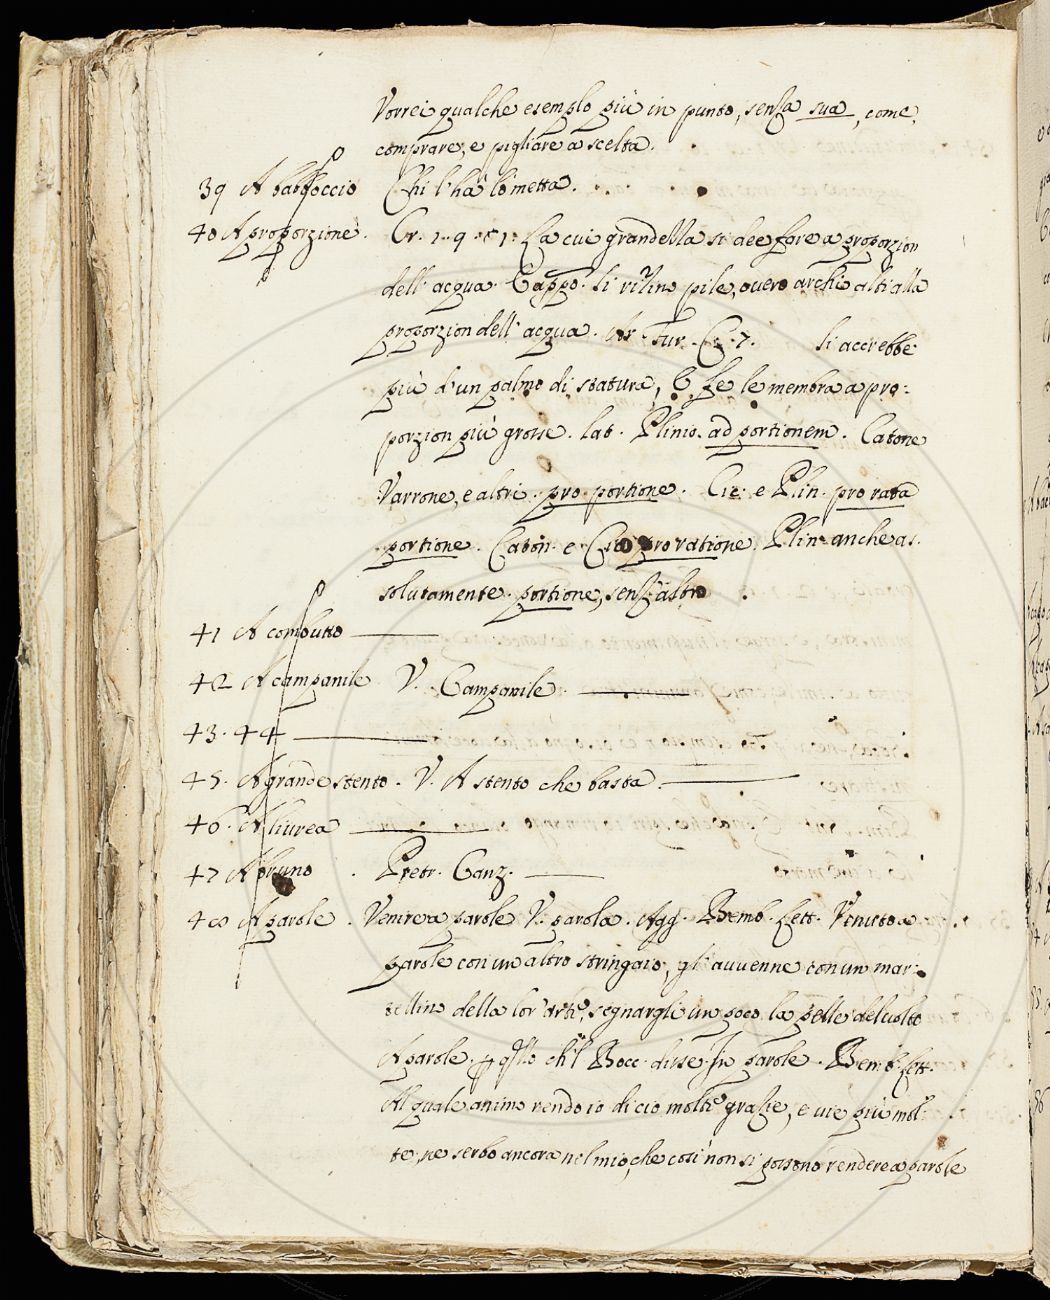 Vorrei qualche esemplo più in punto, senza sua, come
comprare, e pigliare a scelta.
39 A babboccio Chi l'ha lo metta.
40 A proporzione. Cr. 1. 9. 51. La cui grandella si dee fare a proporzion
dell'acqua. E appo. li pile, overo archi alti alla
proporzion dell'acqua. Ar. Fur. 7. Si accrebbe
più d'un palmo di statura, E fe le membra a pro:
porzion più grosse. lat. Plinio. ad portionem. Catone
Varrone, e altri. pro portione. Cic. e Plin. pro rata
portione. Caton. e pro ratione. Plin. anche as.
solutamente. portione, senz'altro
41 A combutto
42 A campanile V. Campanile.
43. 44
45. A grande stento. V. A stento che basta
46. A liurea
47 A bruno. Petr. Canz.
48 A parole. Venire a parole V. parola. Agg. Bemb. Lett. Venuto a
parole con un altro stringaio, gl'avvenne con un mar:
tellino della lor arte, segnargli un poco la pelle del volto
A parole. p qllo ch'l Bocc. disse. In parole. Bemb. Lett.
Al quale animo rendo io di cio molte grazie, e vie più mol
te, ne serbo ancora nel mio, che così non si possono rendere a parole